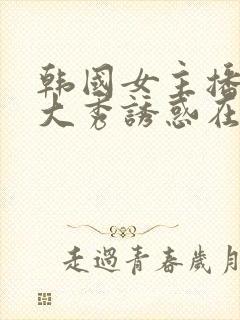 韩國女主播
大秀誘惑在
走過青春歲月